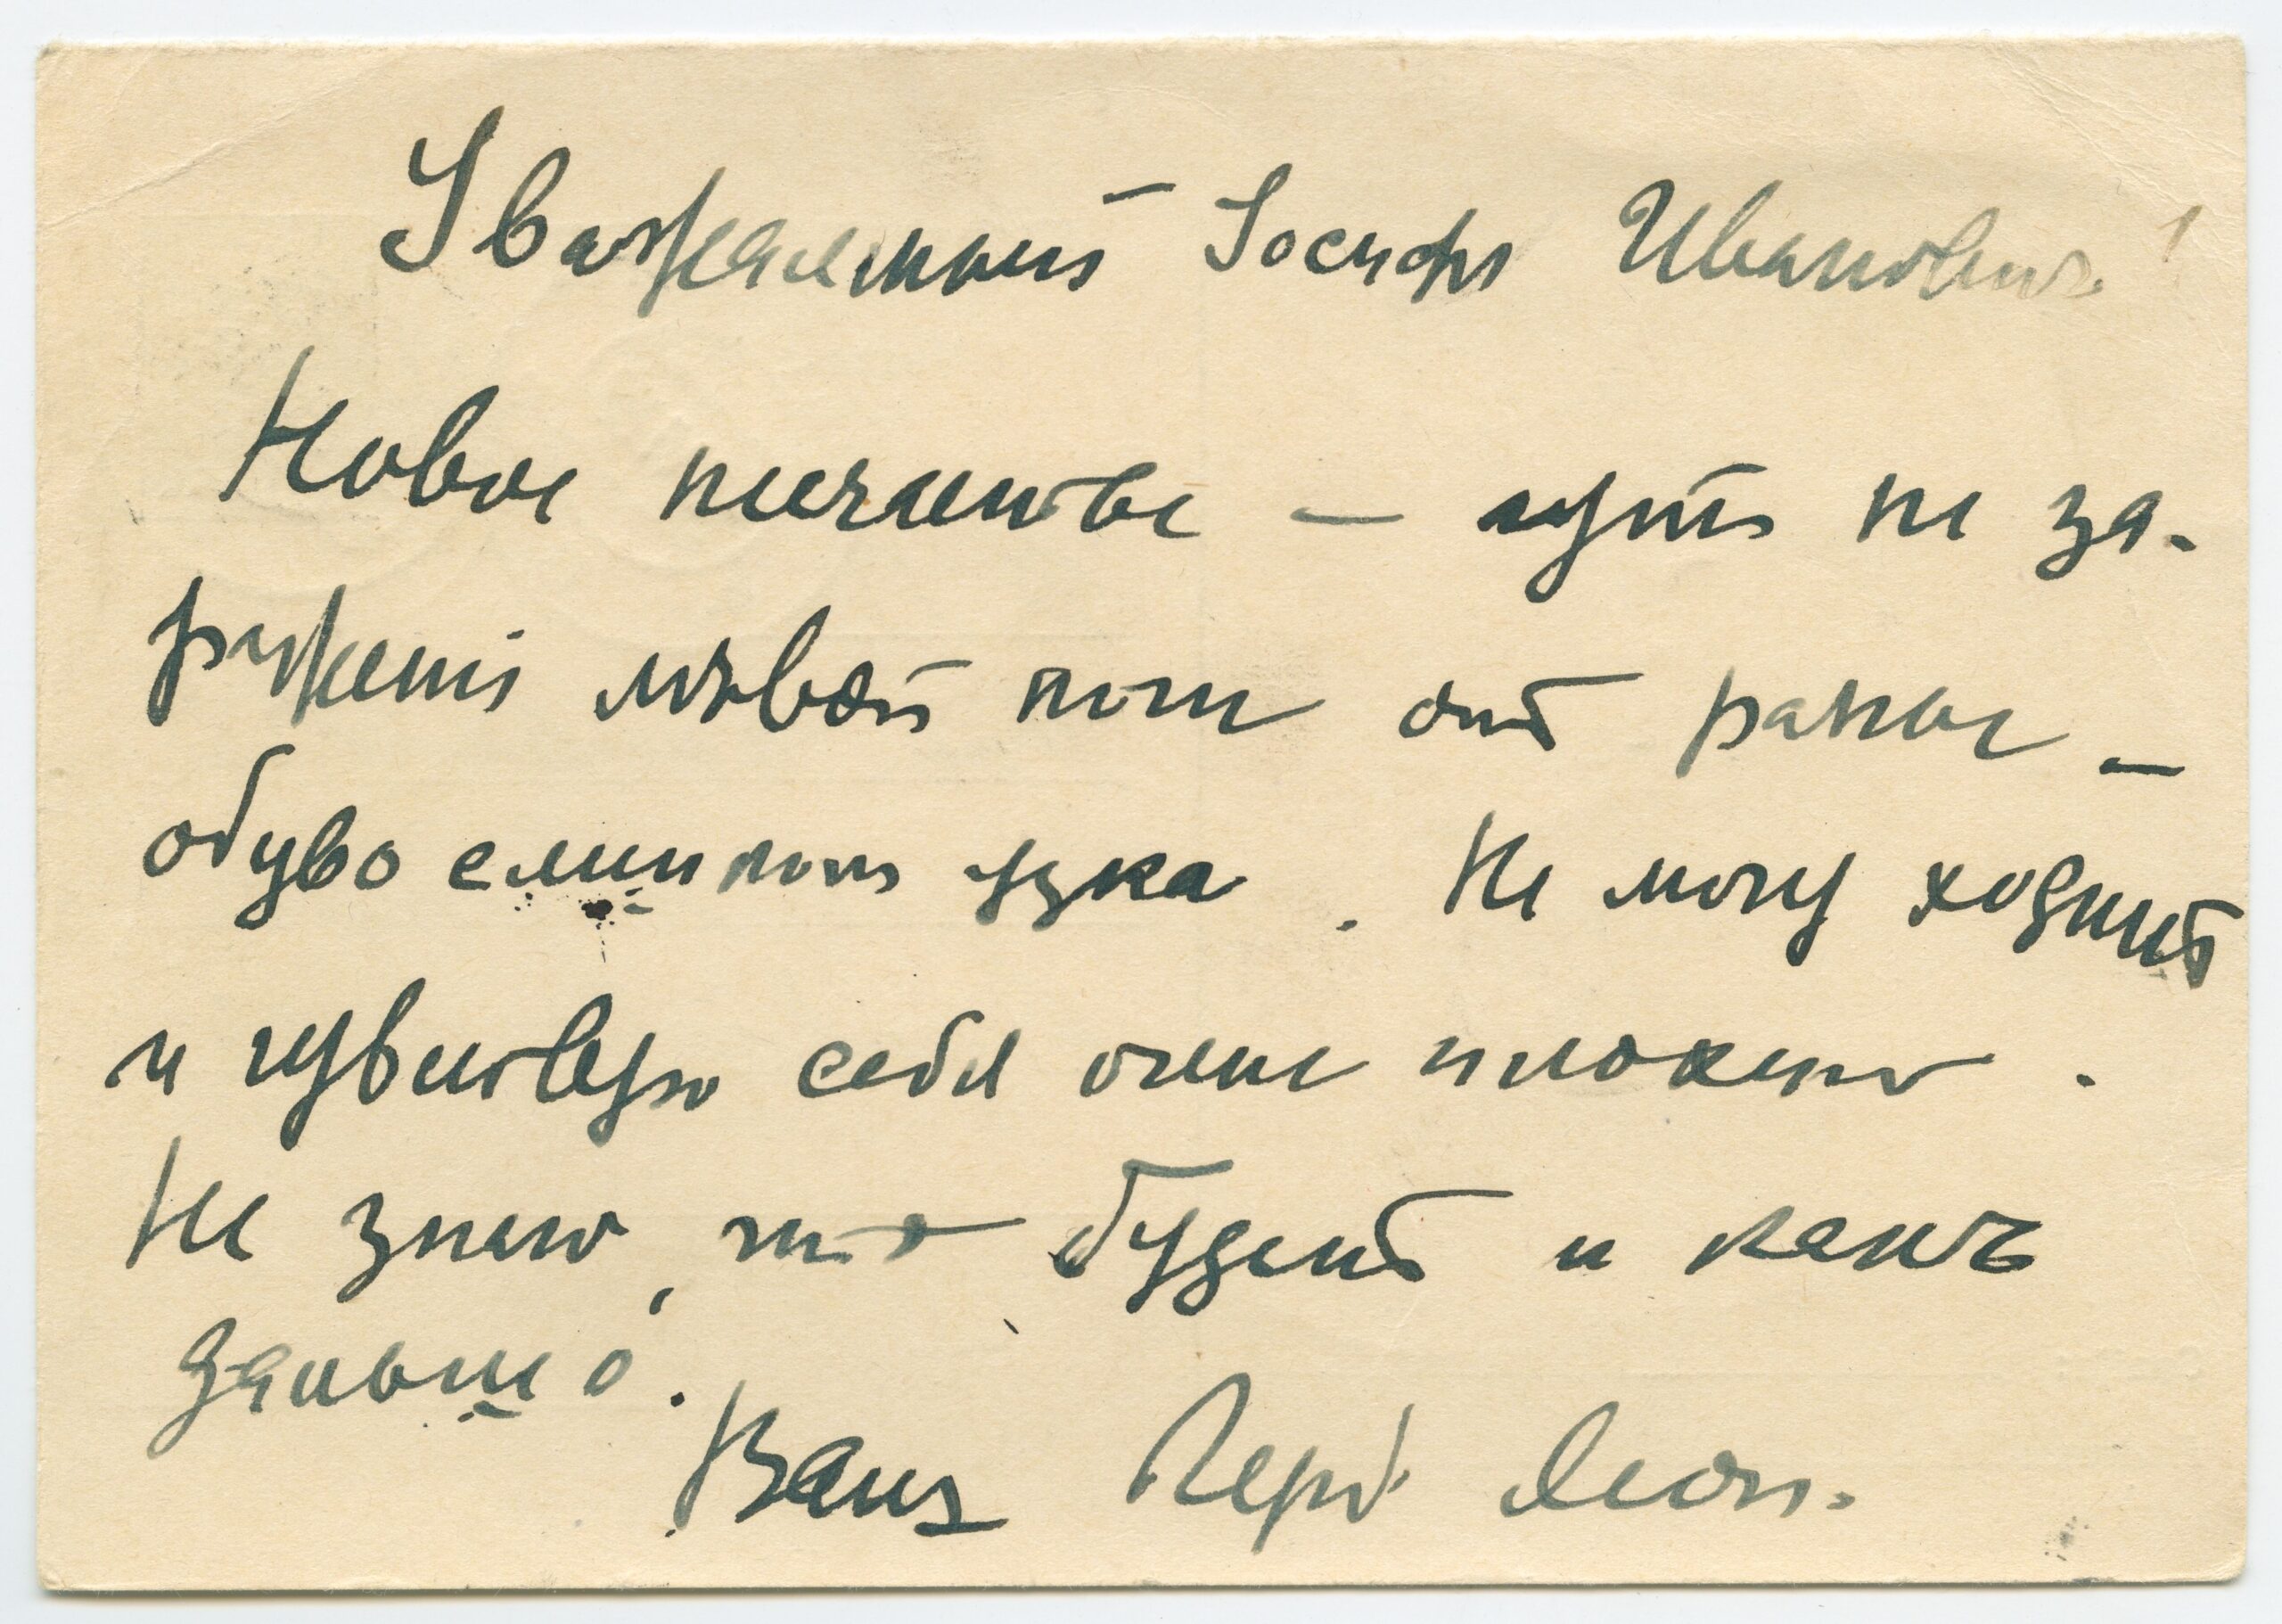 Уважаемый Iосифъ Ивановичъ!
Новое несчастье — чуть не за-
раженiе левой ноги отъ раны —
обувь слишкомъ узка. Не могу ходить
и чувствую себя очень плохо.
Не знаю, что будетъ и какъ
дальше.
Вашъ